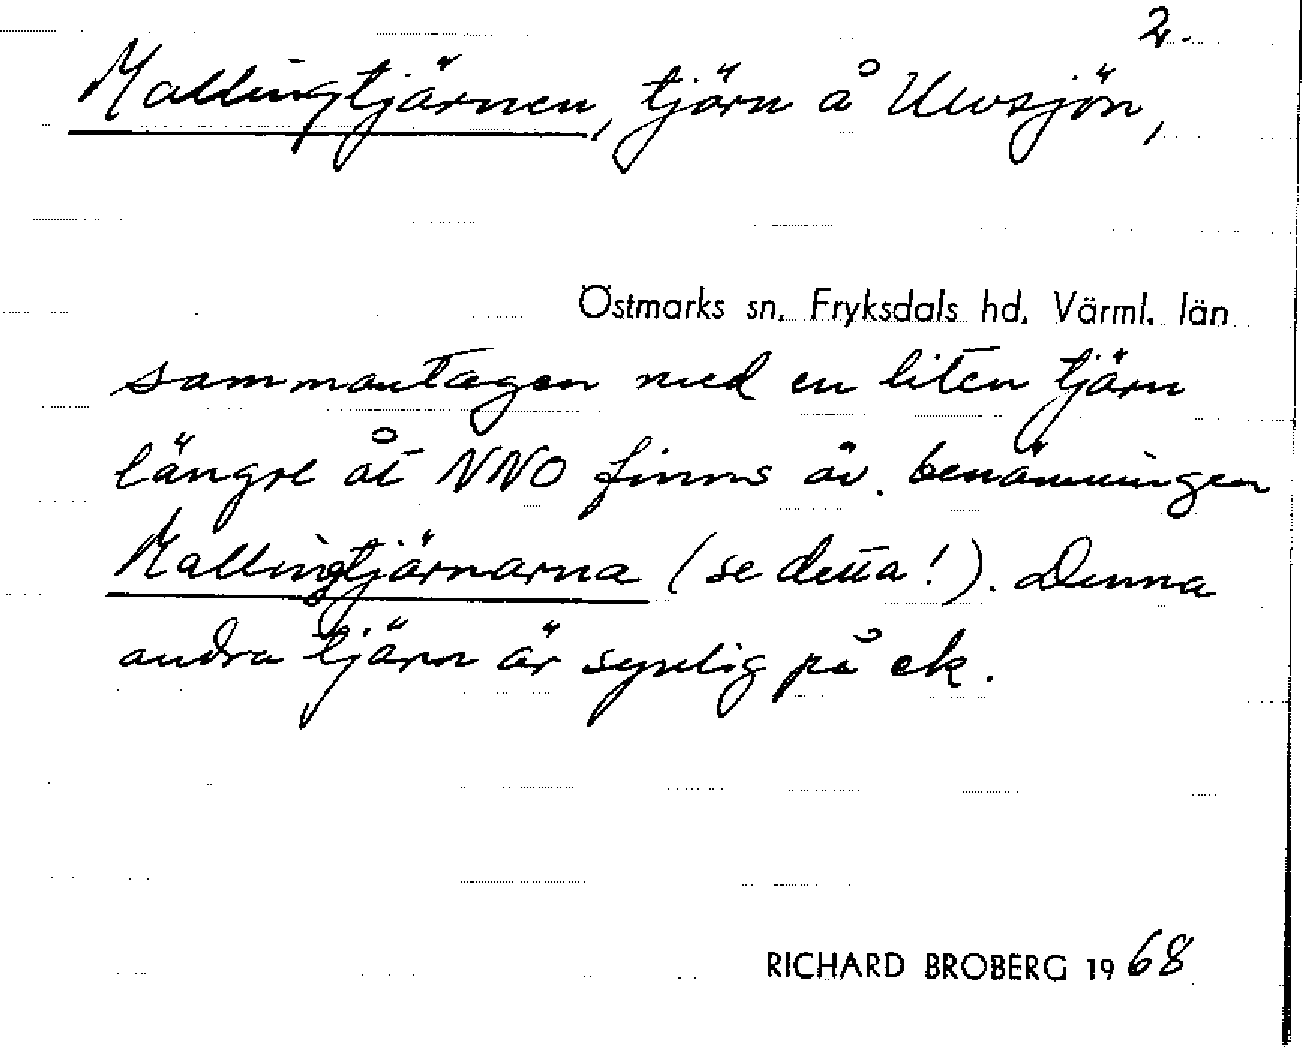 2.
Mallingtjärnen, tjärn å Ulvsjön,
Östmarks sn. Fryksdals hd. Värml. län
sammantagen med en liten tjärn
längre åt NNO finns äv. benämningen
Mallingtjärnarna (se detta!). Denna
andra tjärn är synlig på ek.
RICHARD BROBERG 1968